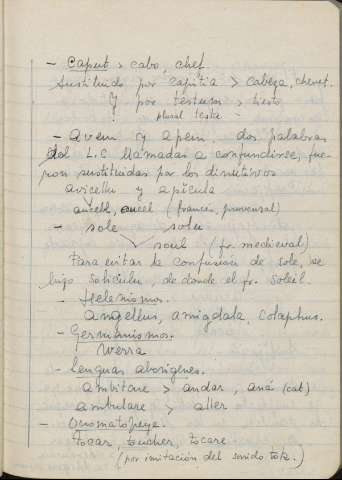 - Caput > cabo, chef
Sustituido por capitia > cabeza, chevet.
Y por testum > tiesto
plural testa -
- Avem y apem, dos palabras
del L.C llamadas a confundirse, fue-
ron sustituidas por los diminutivos
avicellu y apicula
aucell, aucel (francés, provenzal)
- sole solu
soul (fr. medieval)
Para evitar la confusión de sole, se
hizo soliculu, de donde el fr. soleil.
- Helenismos.
Angellus, amigdala, colaphus.
- Germanismos.
Werra
- Lenguas aborígenes.
Ambitare > andar, aná (cat)
ambulare > aller
- Onomatopeya.
Tocar, toucher, tocare
(por imitación del sonido tok.)